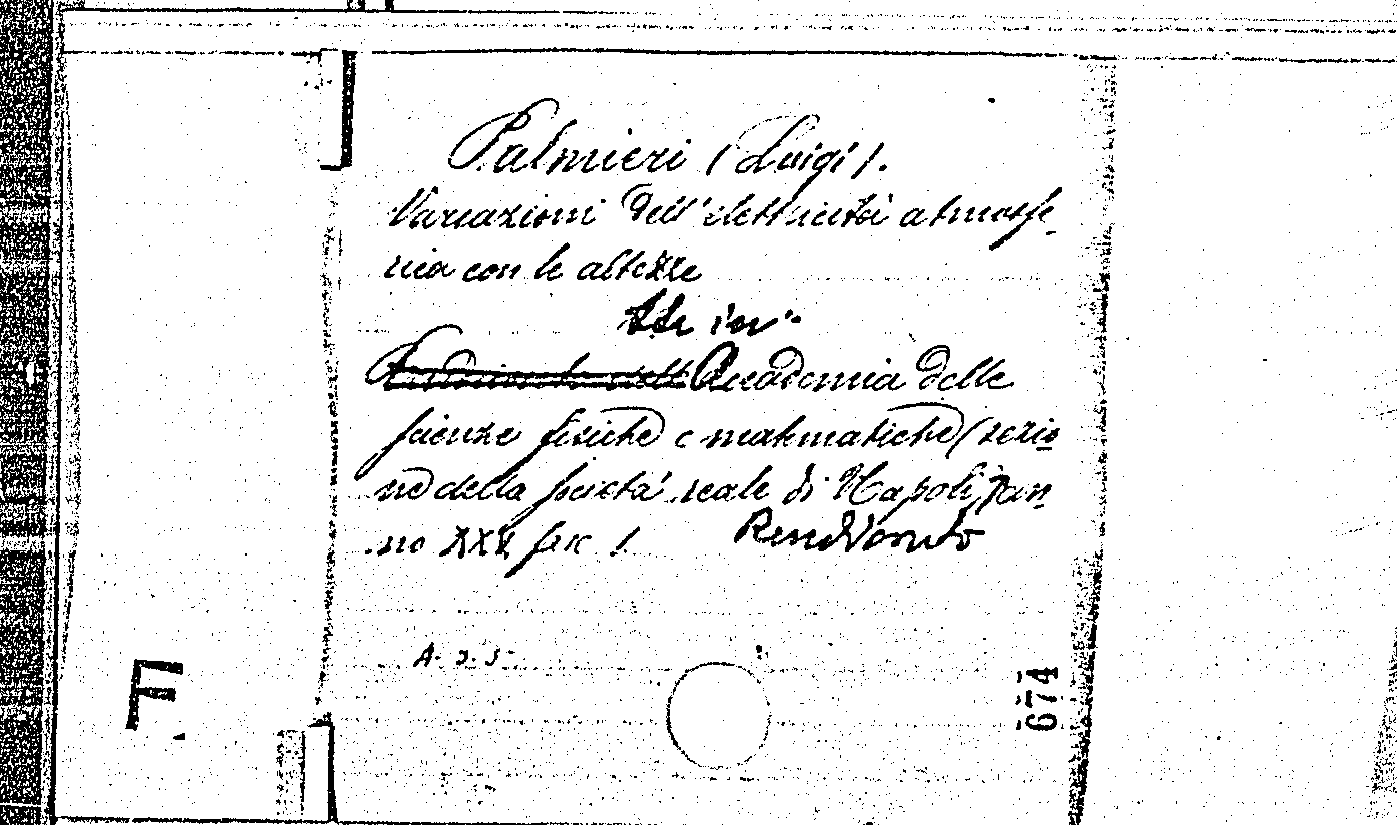 Palmieri (Luigi).
Variazioni dell'elettricità atmosfe-
rica con le altezze
Sta in:
Accademia delle
scienze fisiche e matematiche (sezio-
ne della società reale di Napoli) an-
no XXX fasc 1. Rendiconto
A. 3. 5.
F
674